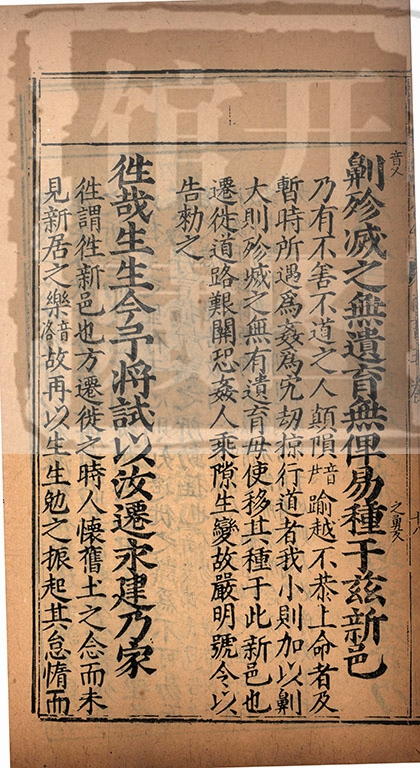 劓殄滅之無遺育無俾易種于茲新邑
乃有不害不道之人顛隕音踰越不恭上命者及
暫時所遇爲姦爲宄刼掠行道者我小則加以劓
大則殄滅之無有遺育毋使移其種于此新邑也
遷徙道路艱關恐姦人乘隙生變故嚴明號令以
告勑之
徃哉生生今予將試以汝遷永建乃家
徃謂徃新邑也方遷徙之時人懷舊土之念而未
見新居之樂音洛故再以生生勉之振起其怠惰而